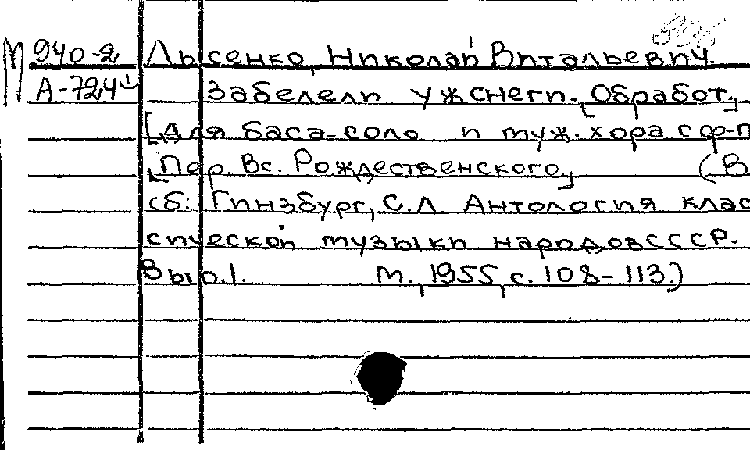 М 940-2 Лысенко, Николай Витальевич
А-724 Забелели уж снеги. [Обработ.]
[для баса-соло и муж. хора с ф-п
[Пер. Вс. Рождественского] (В
сб: Гинзбург, С.Л. Антология клас
сической музыки народов СССР.
Вып. 1. М., 1955, с. 108-113.)